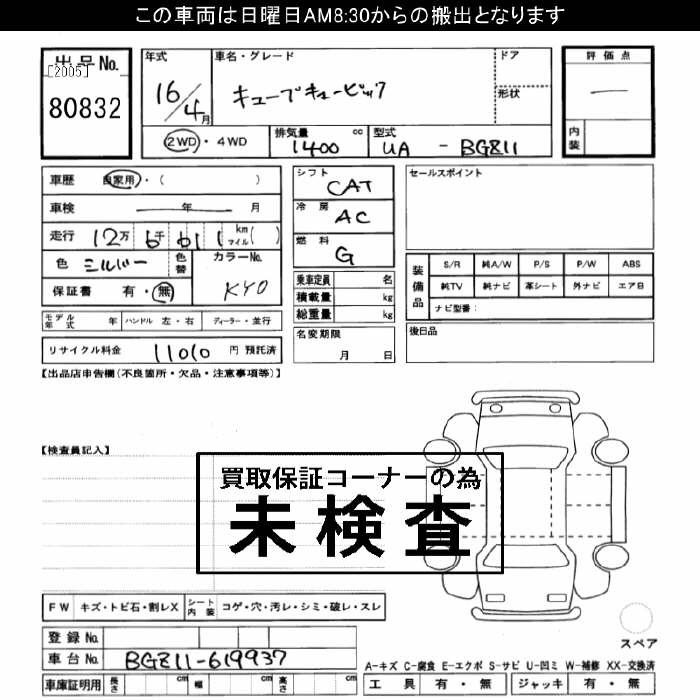 この車両は日曜日AM8:30からの搬出となります
出品No.
[2005]
80832
年式
16/4月
車名・グレード
キューブキュービック
ドア
形状
評価点
―
内装
2WD・4WD
排気量 cc
1400
型式
UA - BGZ11
車歴 自家用・( )
車検 年 月
走行 12万 6千 611 km マイル( )
色 シルバー
色替
カラーNo.
KY0
保証書 有・無
シフト
CAT
冷房
AC
燃料
G
乗車定員 名
積載量 kg
総重量 kg
名変期限
月 日
セールスポイント
装備品
S/R 純A/W P/S P/W ABS
純TV 純ナビ 革シート 外ナビ エアB
ナビ型番:
後日品
モデル年式 年 ハンドル 左・右 ディーラー・並行
リサイクル料金 11010 円 預託済
【出品店申告欄(不良箇所・欠品・注意事項等)】
【検査員記入】
買取保証コーナーの為
未検査
FW キズ・トビ石・割レX シート内装 コゲ・穴・汚レ・シミ・破レ・スレ
登録No.
車台No. BGZ11-619937
車庫証明用 長さ cm 幅 cm 高さ cm
スペア
A-キズ C-腐食 E-エクボ S-サビ U-凹ミ W-補修 XX-交換済
工具 有・無 ジャッキ 有・無